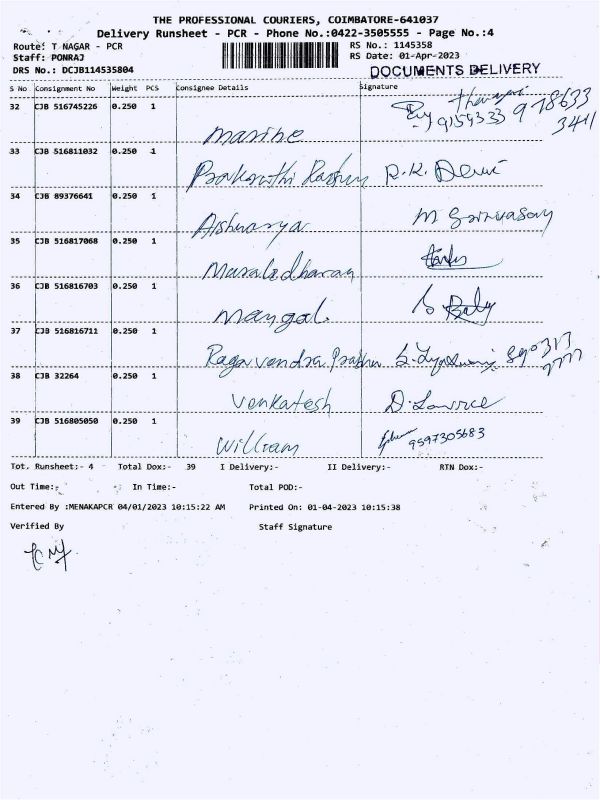 THE PROFESSIONAL COURIERS, COIMBATORE-641037
Delivery Runsheet - PCR - Phone No.:0422-3505555 - Page No.:4
Route: T NAGAR - PCR
RS No.: 1145358
Staff: PONRAJ
RS Date: 01-Apr-2023
DRS No.: DCJB114535804
DOCUMENTS DELIVERY
S No Consignment No Weight PCS Consignee Details Signature
32 CJB 516745226 0.250 1
33 CJB 516811032 0.250 1
R.K. Devi
34 CJB 89376641 0.250 1
Aishwarya
35 CJB 516817068 0.250 1
Muralidharan
36 CJB 516816703 0.250 1
Mangal
37 CJB 516816711 0.250 1
Ragavendra Prabhu
38 CJB 32264 0.250 1
Venkatesh
39 CJB 516805050 0.250 1
William 9597305683
Tot. Runsheet:- 4 Total Dox:- 39 I Delivery:- II Delivery:- RTN Dox:-
Out Time:- In Time:- Total POD:-
Entered By :MENAKAPCR 04/01/2023 10:15:22 AM Printed On: 01-04-2023 10:15:38
Verified By Staff Signature